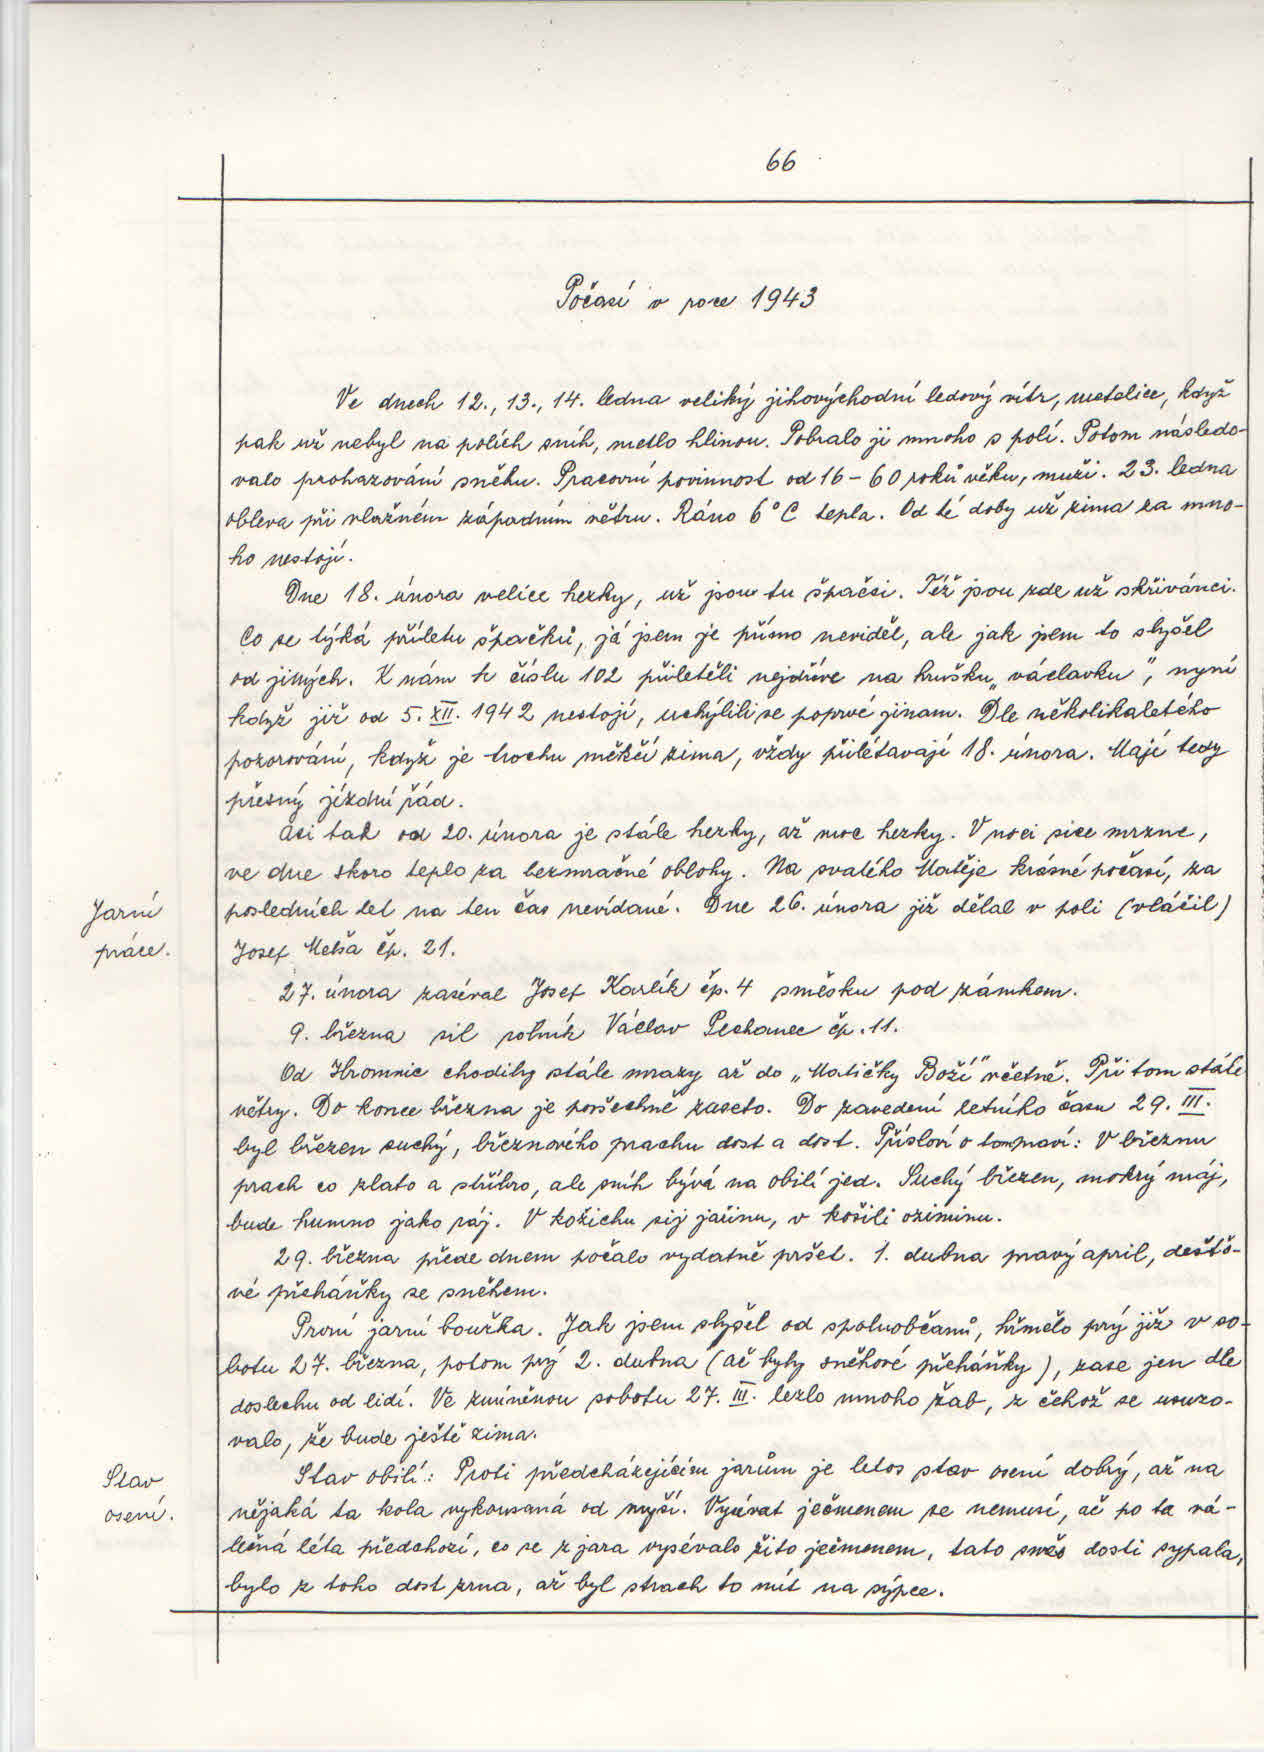 66
Počasí v roce 1943
Ve dnech 12., 13., 14. ledna veliký jihovýchodní ledový vítr, metelice, když
pak už nebyl na polích sníh, metlo hlinou. Pobralo ji mnoho s polí. Potom následo-
valo prohazování sněhu. Pracovní povinnost od 16 - 60 roků věku, muži. 23. ledna
obleva při vlažném západním větru. Ráno 6° C tepla. Od té doby už zima za mno-
ho nestojí.
Dne 18. února velice hezky, už jsou tu špačci. Též jsou zde už skřivánci.
Co se týká příletu špačků, já jsem je přímo neviděl, ale jak jsem to slyšel
od jiných. K nám k číslu 102 přiletěli nejdříve na hrušku „václavku", nyní
když již od 5. XII. 1942 nestojí, uchýlili se poprvé jinam. Dle několikaletého
pozorování, když je trochu měkčí zima, vždy přilétavají 18. února. Mají tedy
přesný jízdní řád.
Asi tak od 20. února je stále hezky, až moc hezky. V noci sice mrzne,
ve dne skoro teplo za bezmračné oblohy. Na svatého Matěje krásné počasí, za
Jarní
posledních let na ten čas nevídané. Dne 26. února již dělal v poli (vláčil)
práce.
Josef Melša čp. 21.
27. února zaséval Josef Karlík čp. 4 směsku pod zámkem.
9. března sil rolník Václav Pechanec čp. 11.
Od Hromnic chodily stále mrazy až do „Matičky Boží" včetně. Při tom stále
větry. Do konce března je povšechně zaseto. Do zavedení letního času 29. III.
byl březen suchý, březnového prachu dost a dost. Přísloví o tom praví: V březnu
prach co zlato a stříbro, ale sníh bývá na obilí jed. Suchý březen, mokrý máj,
bude humno jako ráj. V kožichu sij jařinu, v košili oziminu.
29. března přede dnem počalo vydatně pršet. 1. dubna pravý apríl, dešťo-
vé přeháňky se sněhem.
První jarní bouřka. Jak jsem slyšel od spoluobčanů, hřmělo prý již v so-
botu 27. března, potom prý 2. dubna (ač byly sněhové přeháňky), zase jen dle
doslechu od lidí. Ve zmíněnou sobotu 27. III. lezlo mnoho žab, z čehož se usuzo-
valo, že bude ještě zima.
Stav
Stav obilí: Proti předcházejícím jarům je letos stav osení dobrý, až na
osení.
nějaká ta kola vykousaná od myší. Vysévat ječmenem se nemusí, ač po ta vá-
lečná léta předchozí, co se z jara vysévalo žito ječmenem, tato směs dosti sypala,
bylo z toho dost zrna, až byl strach to mít na sýpce.